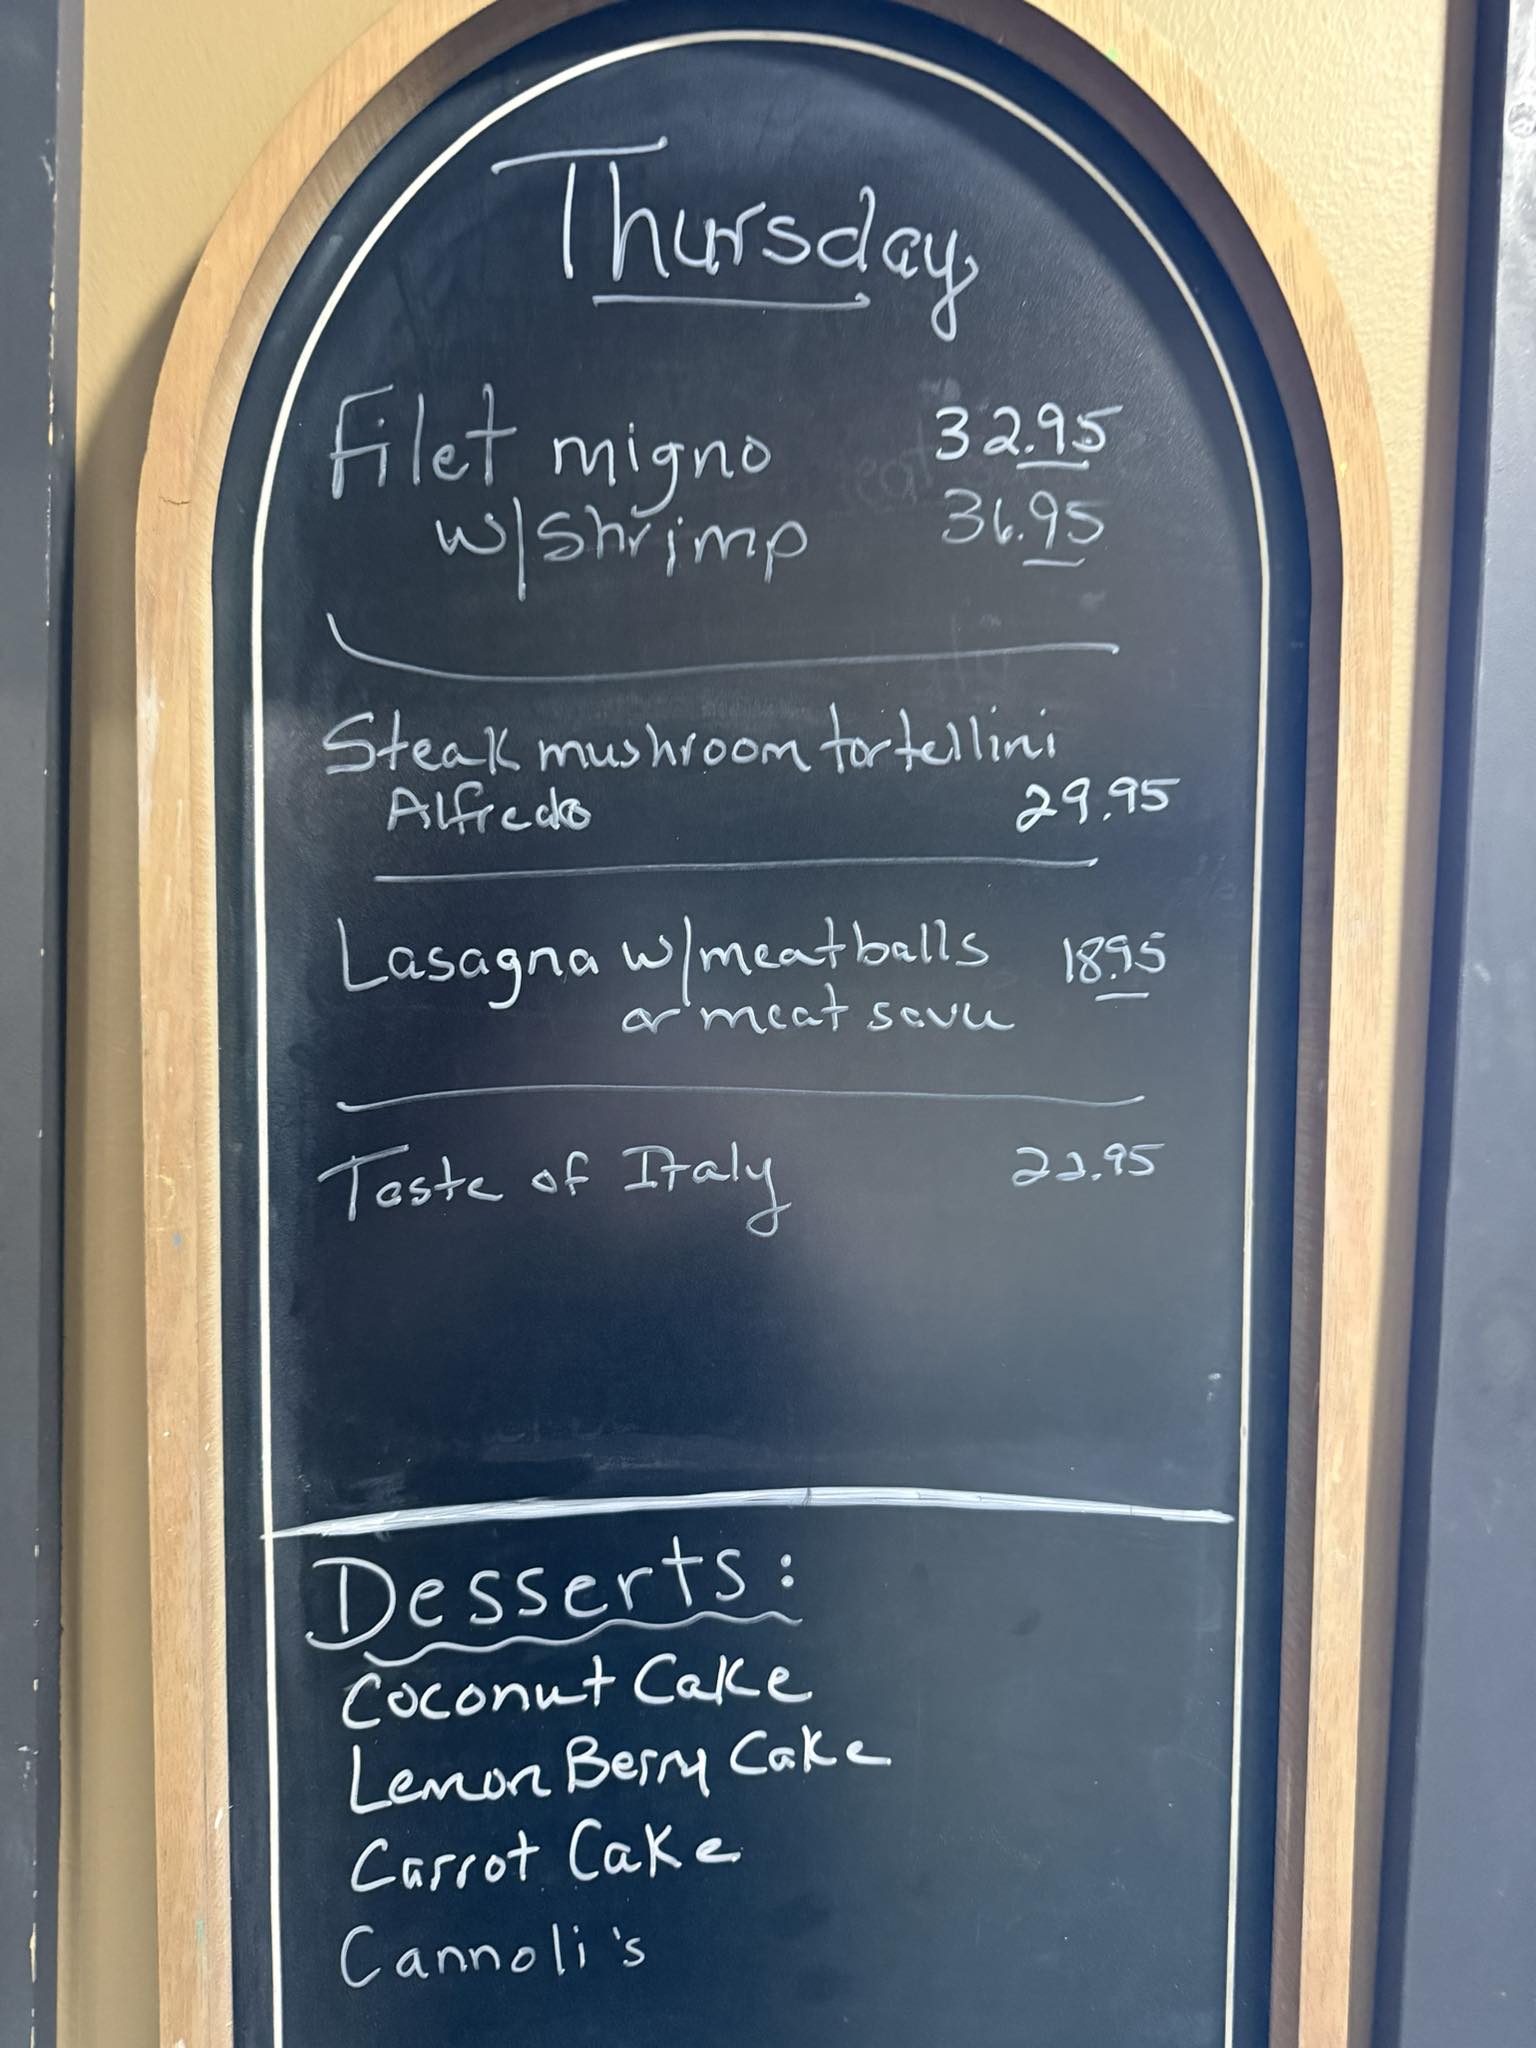 Thursday
Filet migno 32.95
w/shrimp 36.95
Steak mushroom tortellini
Alfredo 29.95
Lasagna w/meatballs 18.95
or meat sauce
Taste of Italy 22.95
Desserts:
Coconut Cake
Lemon Berry Cake
Carrot Cake
Cannoli's